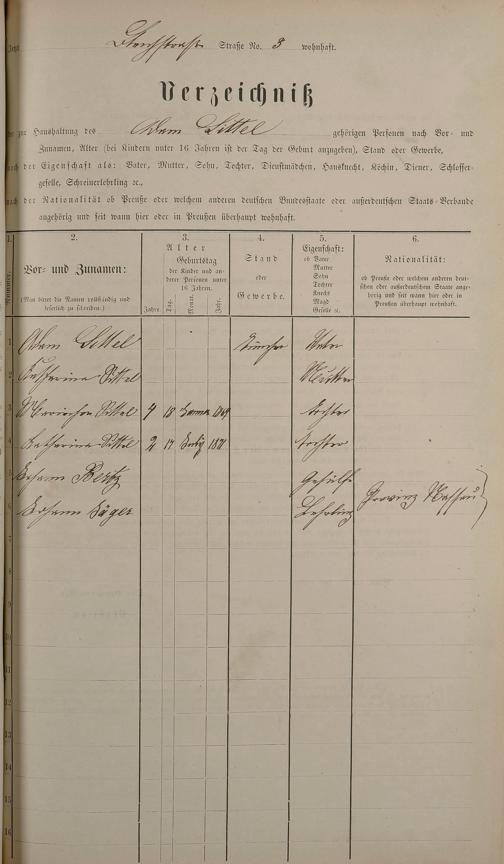 Jetzt Straße No. 3 wohnhaft.
Verzeichniß
der zur Haushaltung des Adam Sittel gehörigen Personen nach Vor- und
Zunamen, Alter (bei Kindern unter 16 Jahren ist der Tag der Geburt anzugeben), Stand oder Gewerbe,
nach der Eigenschaft als: Vater, Mutter, Sohn, Tochter, Dienstmädchen, Hausknecht, Köchin, Diener, Schlosser-
geselle, Schreinerlehrling ꝛc.,
nach der Nationalität ob Preuße oder welchem anderen deutschen Bundesstaate oder außerdeutschen Staats-Verbande
angehörig und seit wann hier oder in Preußen überhaupt wohnhaft.
1.
Nummer.
2.
Vor- und Zunamen:
(Man bittet die Namen vollständig und
leserlich zu schreiben.)
3.
Alter
Geburtstag
der Kinder und an-
derer Personen unter
16 Jahren.
Jahre. Tag. Monat. Jahr.
4.
Stand
oder
Gewerbe.
5.
Eigenschaft:
ob Vater
Mutter
Sohn
Tochter
Knecht
Magd
Geselle ꝛc.
6.
Nationalität:
ob Preuße oder welchem anderen deut-
schen oder außerdeutschen Staate ange-
hörig und seit wann hier oder in
Preußen überhaupt wohnhaft.
1 Adam Sittel Tüncher Vater
2 Katharina Sittel Mutter
3 Sittel 4 18 Januar 1869 Tochter
4 Katharina Sittel 2 17 July 1871 Tochter
5 Johann Gehülfe
6 Johann Jäger Lehrling Provinz Nassau
7
8
9
10
11
12
13
14
15
16